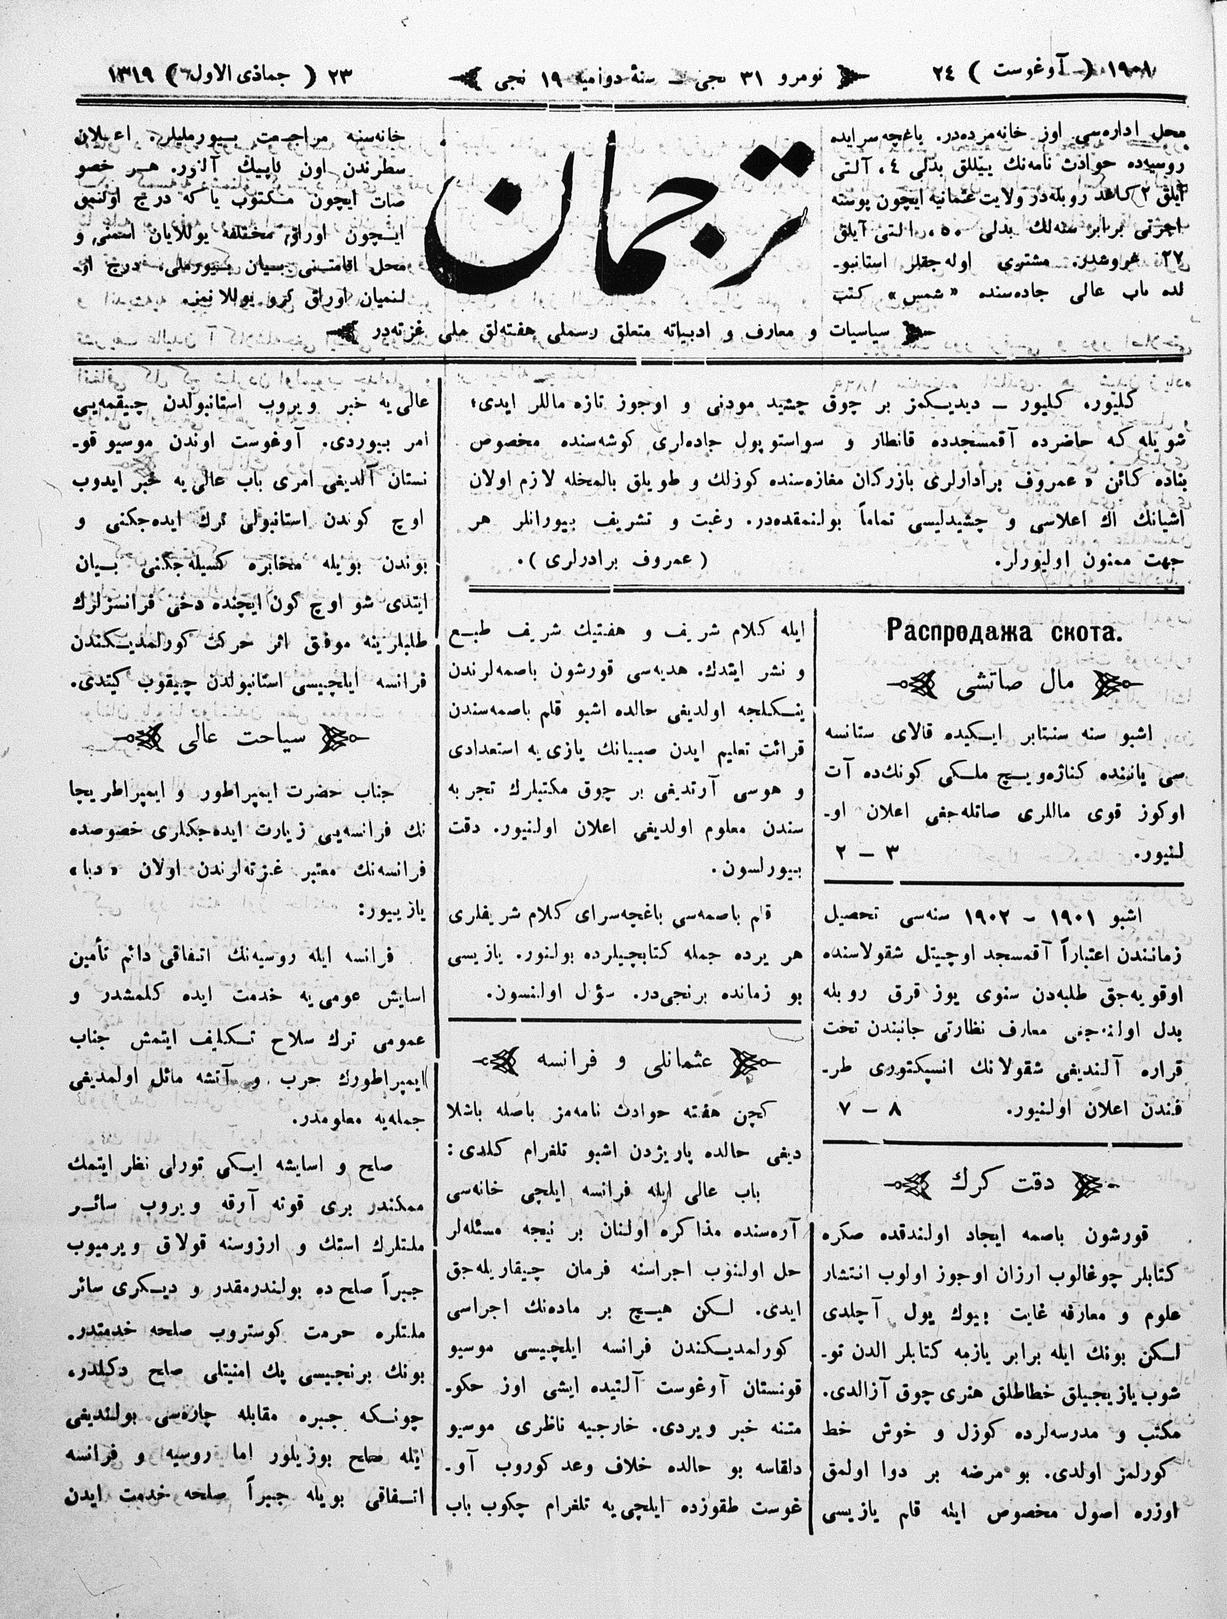 ١٩٠١ ( آوغوست ) ٢٤
نومرو ٣١ نجی ــ سنهٔ دوامیه ١٩ نجی
٢٣ ( جماذی الاول ) ١٣١٩
محل اداره‌سی اوز خانه‌مزده‌در. باغچه‌سرایده
روسیه‌ده حوادث نامه‌نك ییللق بدلی ٤، آلتی
آیلق ٢ کاغد روبله‌در ولایت عثمانیه ایچون پوسته
اجرتی برابر سنه‌لك بدلی ٥٠، التی آیلق
٢٧ غروشدر. مشتری اوله‌جقلر استانبو-
لده باب عالی جاده‌سنده «شمس» کتب
ترجمان
خانه‌سنه مراجعت بیورملیلر. اعلان
سطرندن اون قاپیك آلنور. هر خصو
صات ایچون مکتوب یا که درج اولنمق
ایچون اوراق مختلفه یوللایان اسمنی و
محل اقامتنی بیان بیورملی، درج او-
لنمیان اوراق کرو یوللانیز.
سیاسیات و معارف و ادبیاته متعلق رسملی هفته‌لق ملی غزته‌در
کلیور، کلیور ــ دیدیکمز بر چوق چشید مودنی و اوجوز تازه ماللر ایدی؛
شویله که حاضرده آقمسجدده قانطار و سواستوپول جاده‌لری کوشه‌سنده مخصوص
بناده کائن «عمروف برادارلری بازرکان مغازه‌سنده کوزلك و طویلق بالمخله لازم اولان
اشیانك اك اعلاسی و چشیدلیسی تماماً بولنمقده‌در. رغبت و تشریف بیورانلر هر
جهت ممنون اولیورلر. ( عمروف برادرلری ).
Распродажа скота.
مال صاتشی
اشبو سنه سنتابر ایکیده قالای ستانسه
سی یاننده کناژه‌ویچ ملکی کونك‌ده آت
اوکوز قوی ماللری صاتله‌جغی اعلان او-
لنیور. ٣ ــ ٢
اشبو ١٩٠١ ــ ١٩٠٢ سنه‌سی تحصیل
زماننـدن اعتباراً آقمسجد اوچیتل شقولاسنده
اوقویه‌جق طلبه‌دن سنوی یوز قرق روبله
بدل اولنه‌جغی معارف نظارتی جانبندن تحت
قراره آلندیغی شقولانك انسپکتوری طر-
فندن اعلان اولنیور. ٨ ــ ٧
دقت کرك
قورشون باصمه ایجاد اولندقده صکره
کتابلر چوغالوب ارزان اوجوز اولوب انتشار
علوم و معارفه غایت بیوك یول آچلدی
لکن بونك ایله برابر یازمه کتابلر الدن تو-
شوب یازیجیلق خطاطلق هنری چوق آزالدی.
مکتب و مدرسه‌لرده کوزل و خوش خط
کورلمز اولدی. بو مرضه بر دوا اولمق
اوزره اصول مخصوص ایله قلم یازیسی
ایله کلام شریف و هفتیك شریف طبع
و نشر ایتدك. هدیه‌سی قورشون باصمه‌لرندن
اولدیغی حالده اشبو قلم باصمه‌سندن
قرائت تعلیم ایدن صبیانك یازی‌یه استعدادی
و هوسی آرتدیغی بر چوق مکتبلرك تجربه
سندن معلوم اولدیغی اعلان اولنیور. دقت
بیورلسون.
قلم باصمه‌سی باغچه‌سرای کلام شریفلری
هر یرده جمله کتابچیلرده بولنور. یازیسی
بو زمانده برنجی‌در. سؤل اولنسون.
عثمانلی و فرانسه
کچن هفته حوادث نامه‌مز باصله باشلا
دیغی حالده پاریژدن اشبو تلغرام کلدی:
باب عالی ایله فرانسه ایلچی خانه‌سی
آره‌سنده مذاکره اولنان بر نیجه مسئله‌لر
حل اولنوب اجراسنه فرمان چیقاریله‌جق
ایدی. لکن هیچ بر ماده‌نك اجراسی
کورلمدیکندن فرانسه ایلچیسی موسیو
قونستان آوغوست آلتیده ایشی اوز حکو-
متنه خبر ویردی. خارجیه ناظری موسیو
دلقاسه بو حالده خلاف وعد کوروب آو-
غوست طقوزده ایلچی‌یه تلغرام چکوب باب
عالی‌یه خبر ویروب استانبولدن چیقمه‌یی
امر بیوردی. آوغوست اوندن موسیو قو-
نستان آلدیغی امری باب عالی‌یه خبر ایدوب
اوچ کوندن استانبولی ترك ایده‌جکنی و
بوندن بویله مخابره کسیله‌جکنی بیان
ایتدی شو اوچ کون ایچنده دخی فرانسزلرك
طلبلرینه موفق اثر حرکت کورلمدیکندن
فرانسه ایلچیسی استانبولدن چیقوب کیتدی.
سیاحت عالی
جناب حضرت ایمپراطور و ایمپراطریچا
نك فرانسه‌یی زیارت ایده‌جکلری خصوصده
فرانسه‌نك معتبر غزته‌لرندن اولان «دبا»
یازییور:
فرانسه ایله روسیه‌نك اتفاقی دائم تأمین
اسایش عمومی‌یه خدمت ایده کلمشدر و
عمومی ترك سلاح تکلیف ایتمش جناب
ایمپراطورك حرب و آتشه مائل اولمدیغی
جمله‌یه معلومدر.
صلح و اسایشه ایکی تورلی نظر ایتمك
ممکندر بری قونه آرقه ویروب سائر
ملتلرك استك و ارزوسنه قولاق ویرمیوب
جبراً صلح ده بولندرمقدر و دیکری سائر
ملتلره حرمت کوستروب صلحه خدمتدر.
بونك برنجیسی پك امنیتلی صلح دکلدر،
چونکه جبره مقابله چاره‌سی بولندیغی
ایله صلح بوزیلور اما روسیه و فرانسه
اتفاقی بویله جبراً صلحه خدمت ایدن